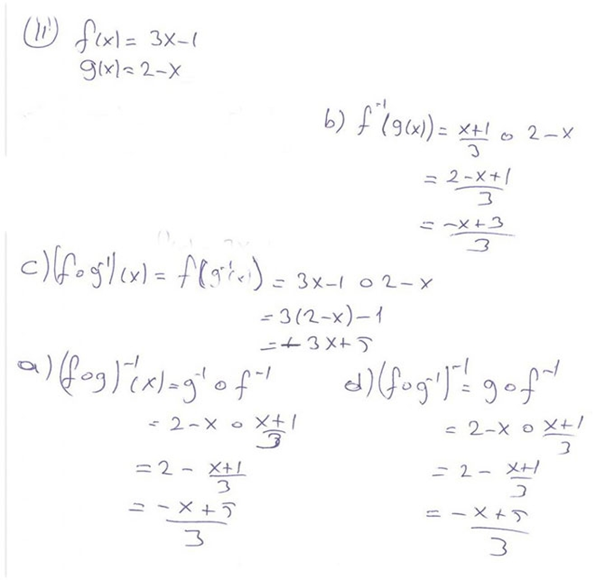 (11) f(x) = 3x-1
g(x) = 2-x
b) f⁻¹(g(x)) = (x+1)/3 ∘ 2-x
= (2-x+1)/3
= (-x+3)/3
c) (f∘g⁻¹)(x) = f(g⁻¹(x)) = 3x-1 ∘ 2-x
= 3(2-x)-1
= -3x+5
a) (f∘g)⁻¹(x) = g⁻¹∘f⁻¹
= 2-x ∘ (x+1)/3
= 2 - (x+1)/3
= (-x+5)/3
d) (f∘g⁻¹)⁻¹ = g∘f⁻¹
= 2-x ∘ (x+1)/3
= 2 - (x+1)/3
= (-x+5)/3